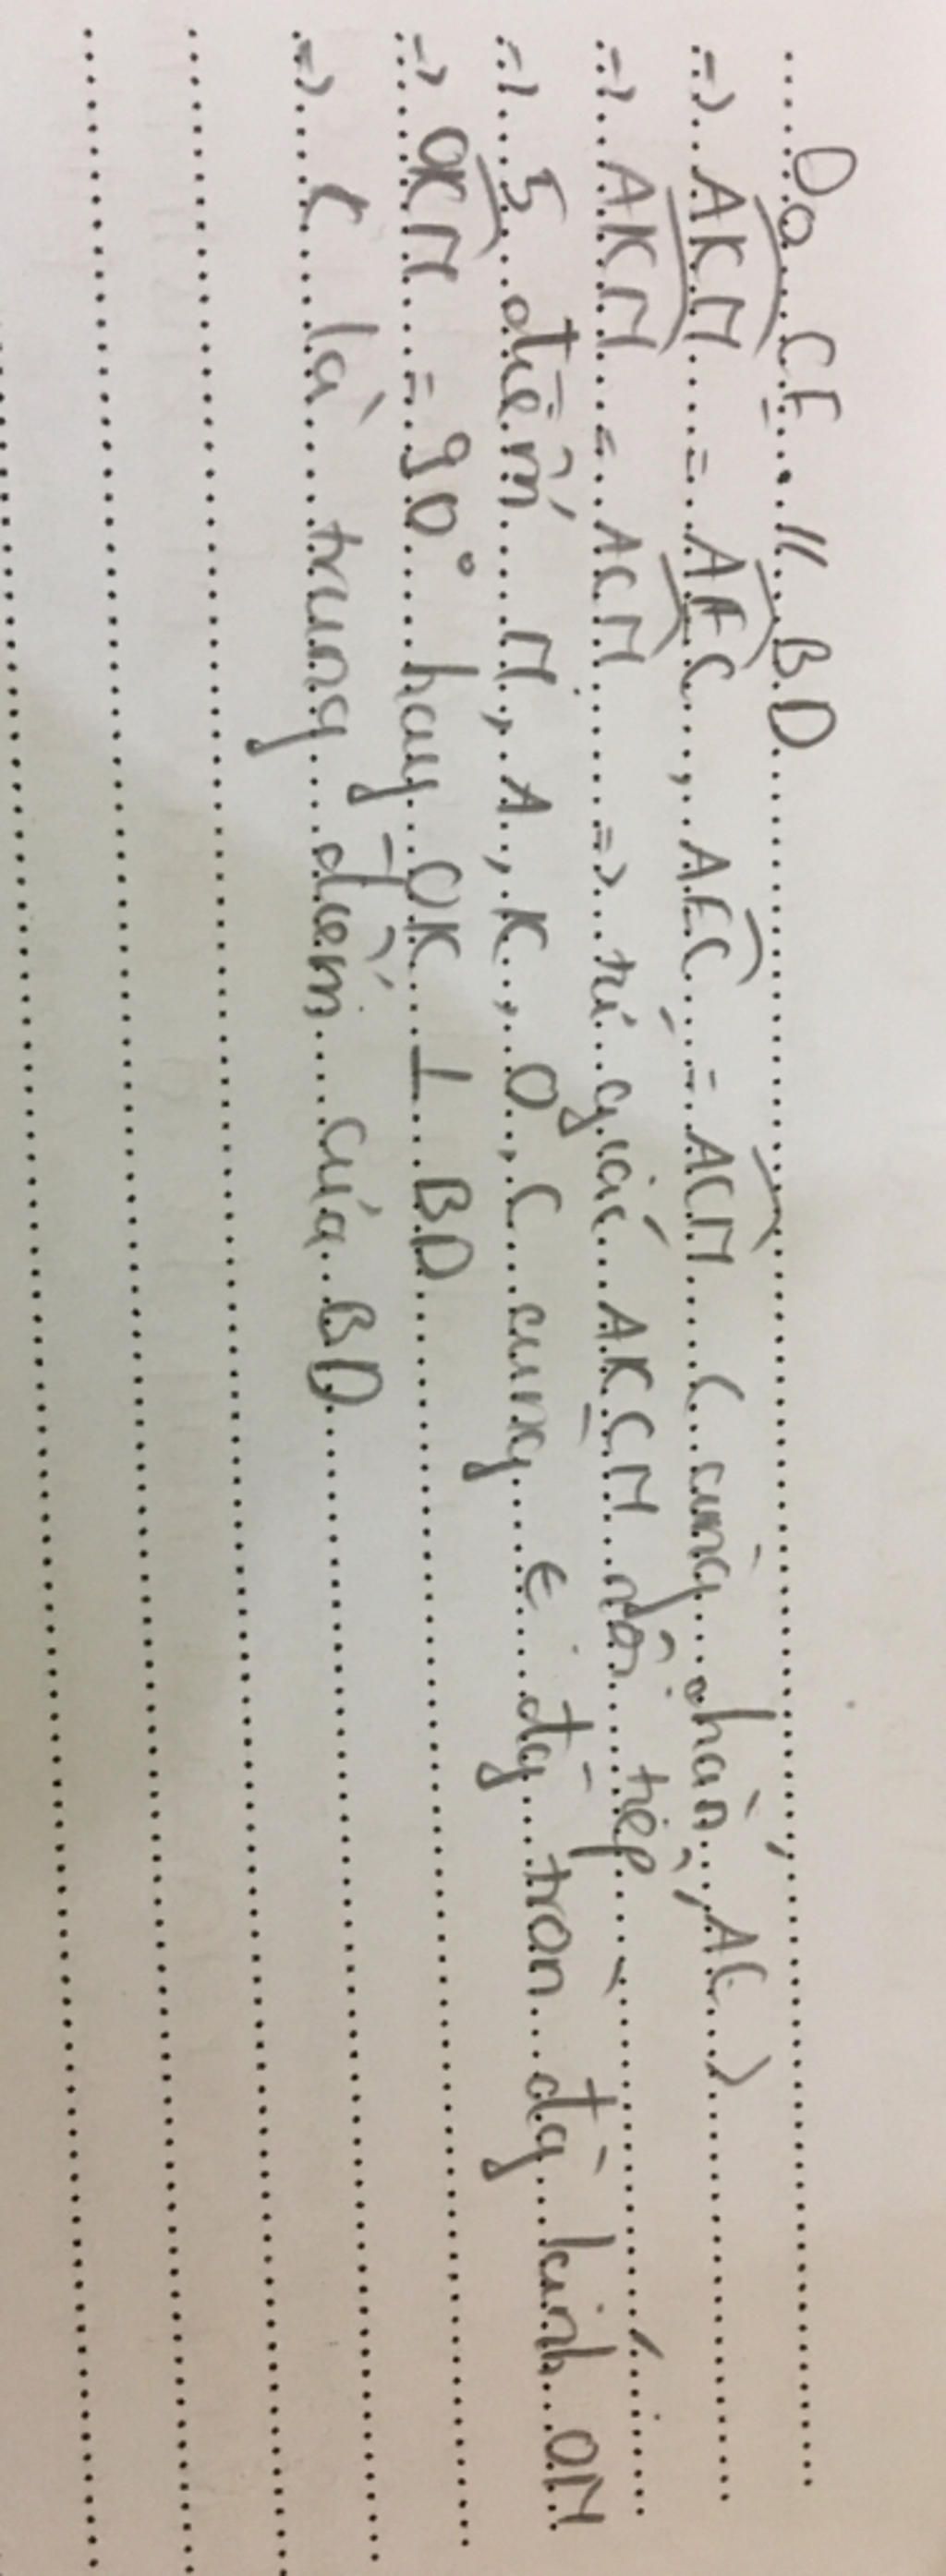 Do CE // BD
=> AKM = AEC, AEC = ACM (cùng chắn AC)
=> AKM = ACM => tứ giác AKCM nội tiếp
=> 5 điểm M, A, K, O, C cùng ∈ đg tròn đg kính OM
=> OKM = 90° hay OK ⊥ BD
=> K là trung điểm của BD